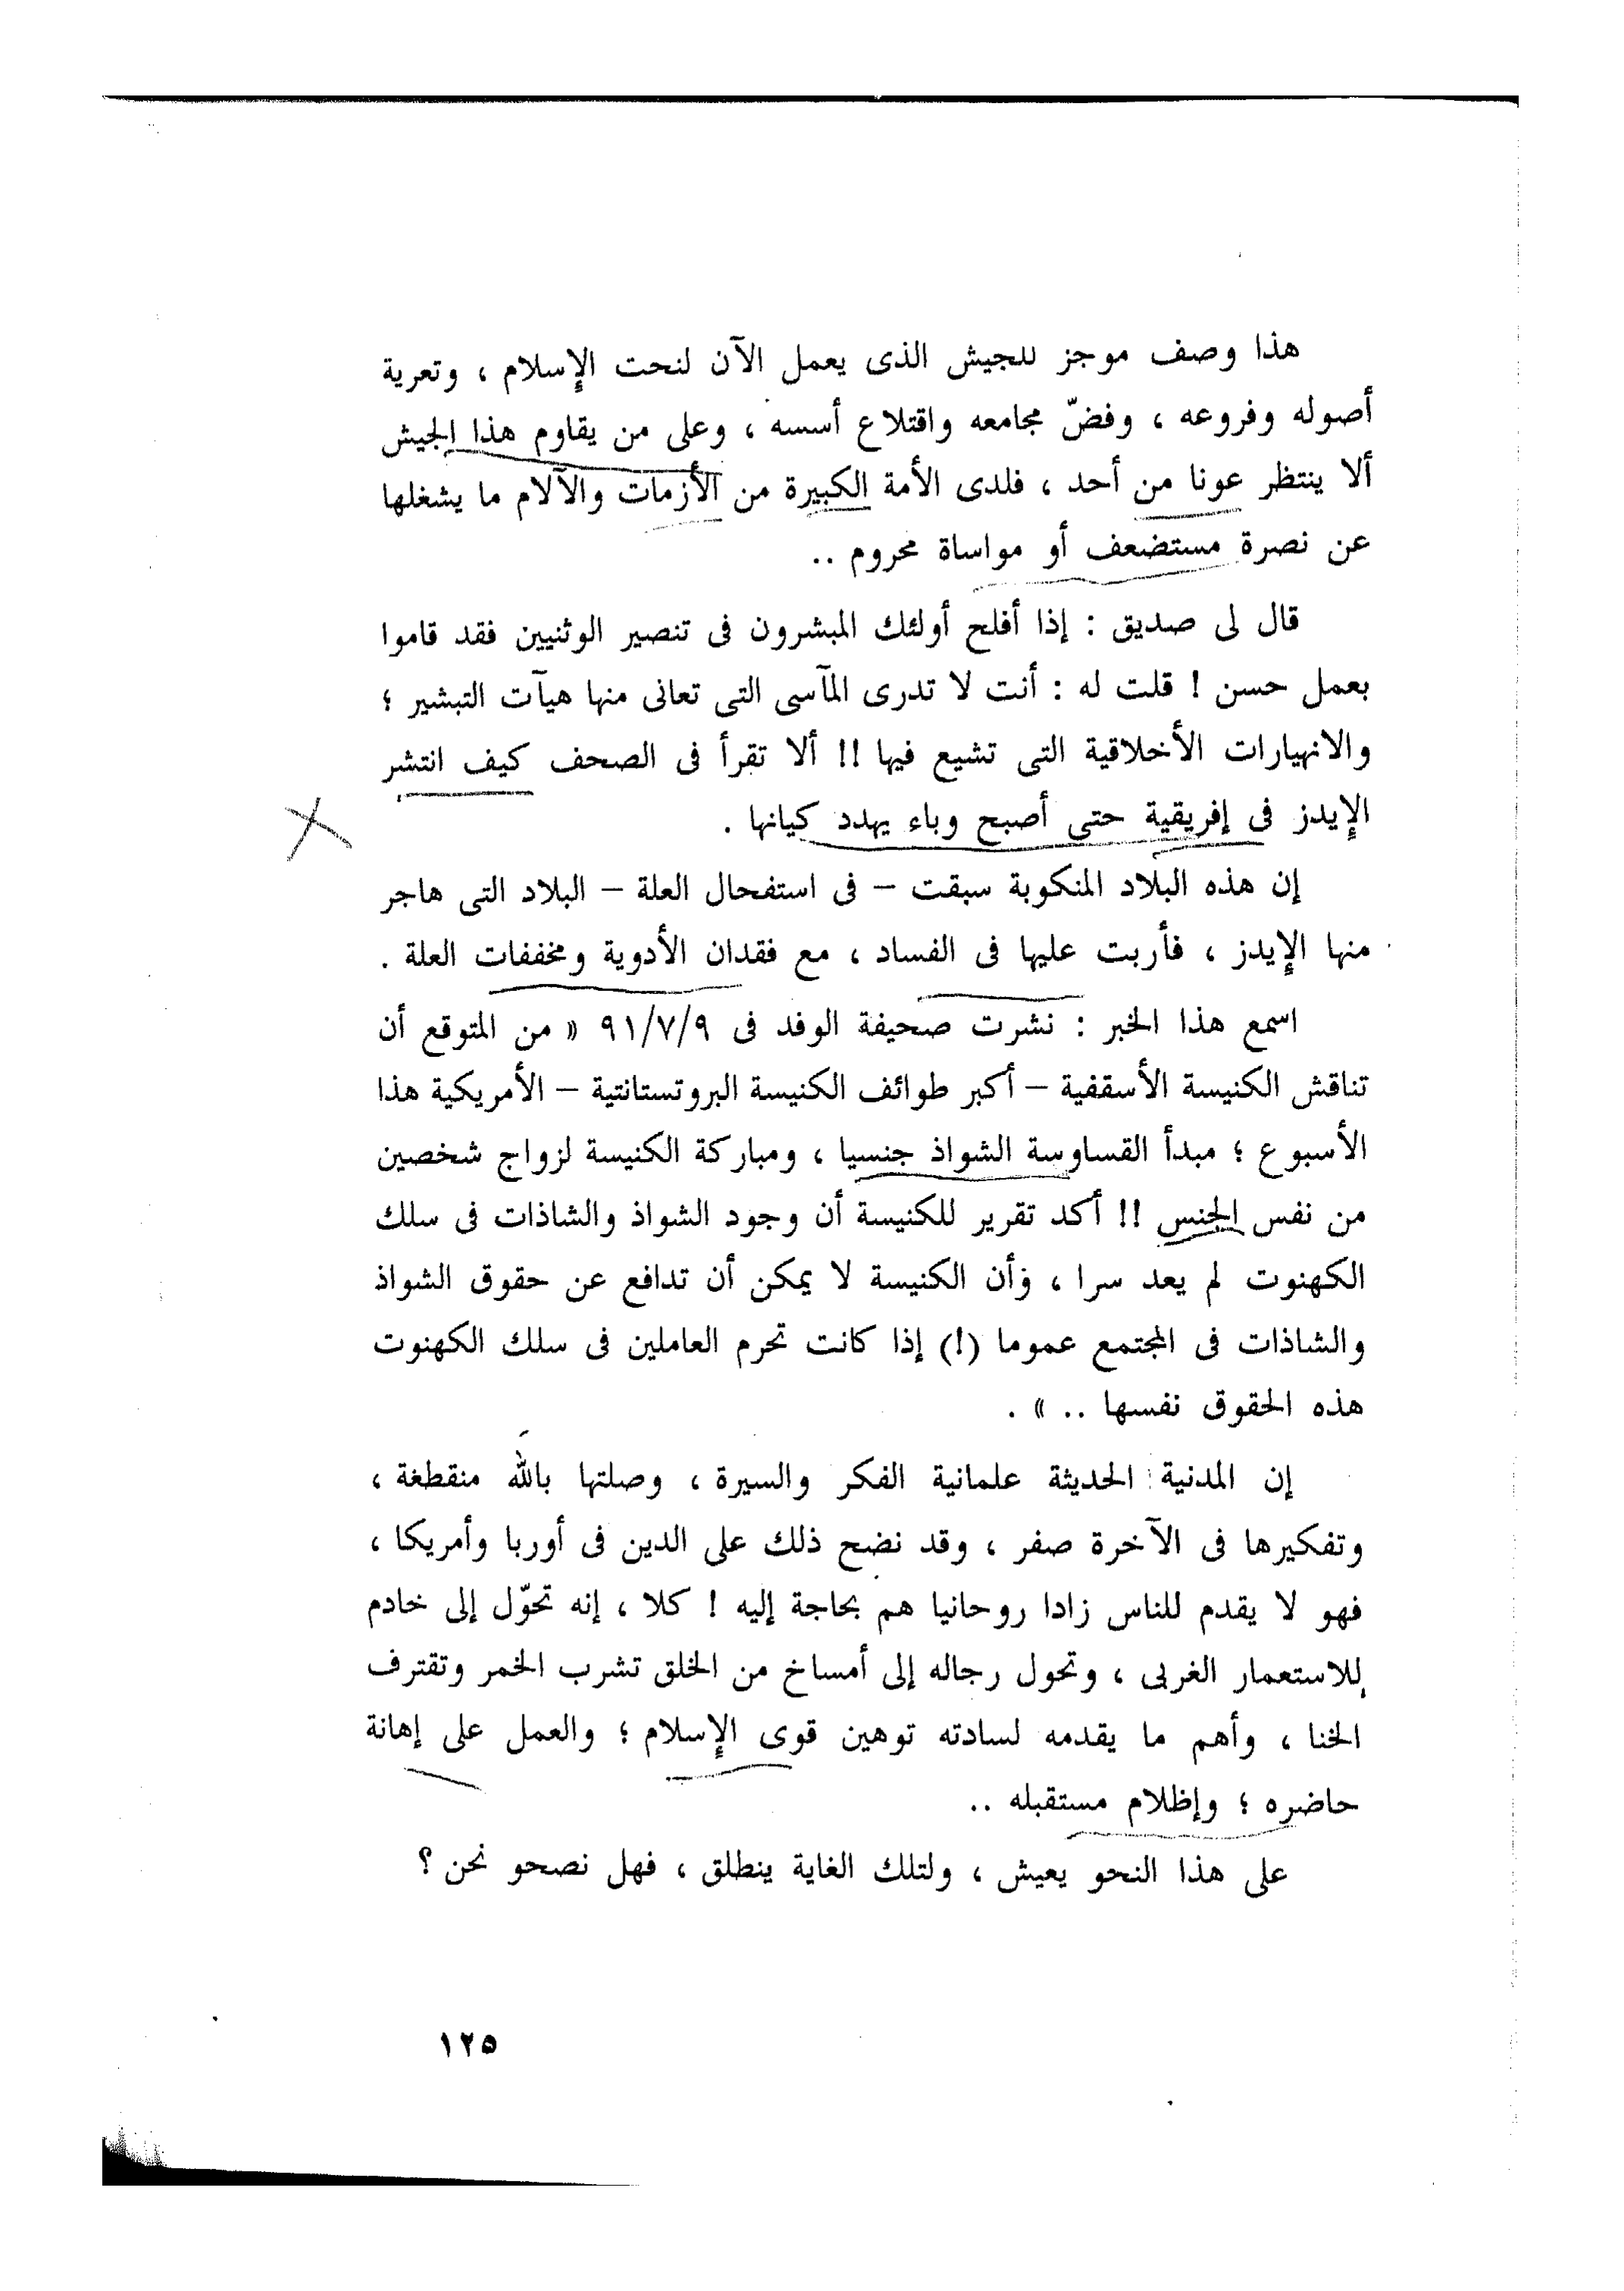 هذا وصف موجز للجيش الذى يعمل الآن لنحت الإسلام ، وتعرية
أصوله وفروعه ، وفضّ مجامعه واقتلاع أسسه ، وعلى من يقاوم هذا الجيش
ألا ينتظر عونا من أحد ، فلدى الأمة الكبيرة من الأزمات والآلام ما يشغلها
عن نصرة مستضعف أو مواساة محروم ..
قال لى صديق : إذا أفلح أولئك المبشرون فى تنصير الوثنيين فقد قاموا
بعمل حسن ! قلت له : أنت لا تدرى المآسى التى تعانى منها هيآت التبشير ؛
والانهيارات الأخلاقية التى تشيع فيها !! ألا تقرأ فى الصحف كيف انتشر
الإيدز فى إفريقية حتى أصبح وباء يهدد كيانها .
إن هذه البلاد المنكوبة سبقت – فى استفحال العلة – البلاد التى هاجر
منها الإيدز ، فأربت عليها فى الفساد ، مع فقدان الأدوية ومخففات العلة .
اسمع هذا الخبر : نشرت صحيفة الوفد فى ٩١/٧/٩ « من المتوقع أن
تناقش الكنيسة الأسقفية – أكبر طوائف الكنيسة البروتستانتية – الأمريكية هذا
الأسبوع ؛ مبدأ القساوسة الشواذ جنسيا ، ومباركة الكنيسة لزواج شخصين
من نفس الجنس !! أكد تقرير للكنيسة أن وجود الشواذ والشاذات فى سلك
الكهنوت لم يعد سرا ، وأن الكنيسة لا يمكن أن تدافع عن حقوق الشواذ
والشاذات فى المجتمع عموما (!) إذا كانت تحرم العاملين فى سلك الكهنوت
هذه الحقوق نفسها .. » .
إن المدنية الحديثة علمانية الفكر والسيرة ، وصلتها بالله منقطعة ،
وتفكيرها فى الآخرة صفر ، وقد نضح ذلك على الدين فى أوربا وأمريكا ،
فهو لا يقدم للناس زادا روحانيا هم بحاجة إليه ! كلا ، إنه تحوّل إلى خادم
للاستعمار الغربى ، وتحول رجاله إلى أمساخ من الخلق تشرب الخمر وتقترف
الخنا ، وأهم ما يقدمه لسادته توهين قوى الإسلام ؛ والعمل على إهانة
حاضره ؛ وإظلام مستقبله ..
على هذا النحو يعيش ، ولتلك الغاية ينطلق ، فهل نصحو نحن ؟
١٢٥